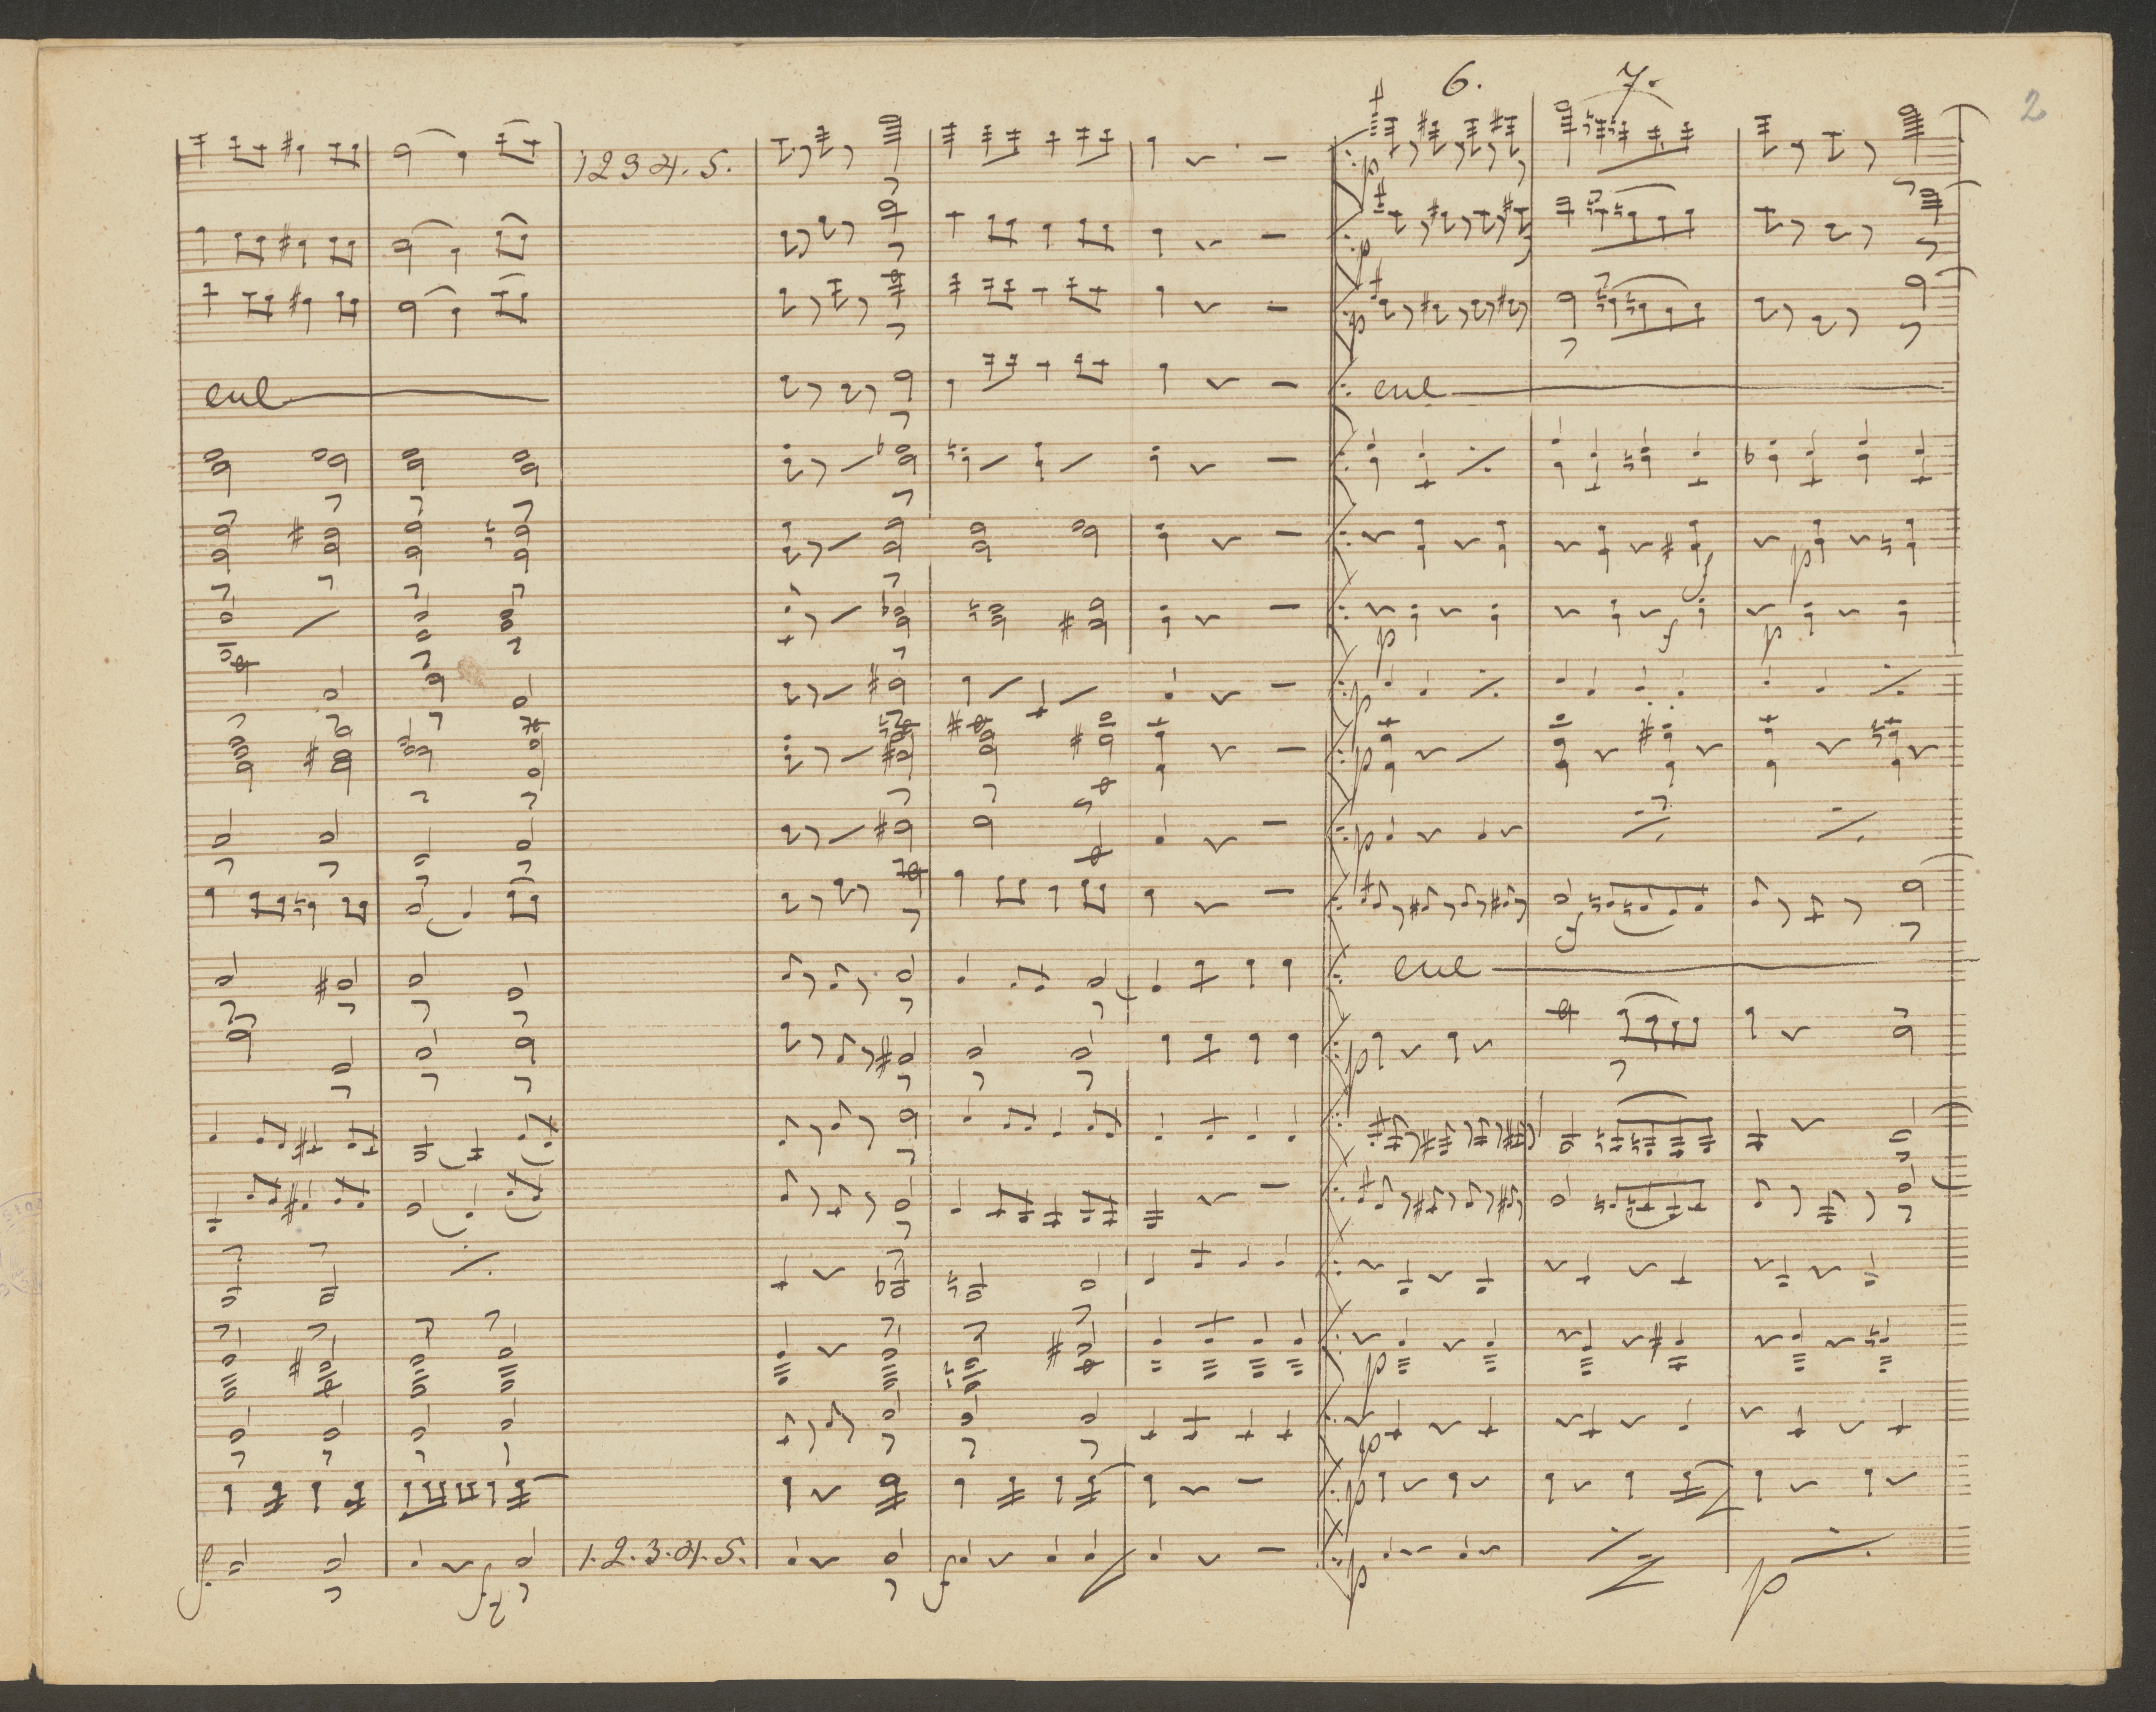 6. 7.
2
1 2 3 4. 5.
p
p
p
cul
cul
f
p
p
f
p
p
p
p
f
cul
p
p
p
p
f. f 1. 2. 3. 4. 5. f p p